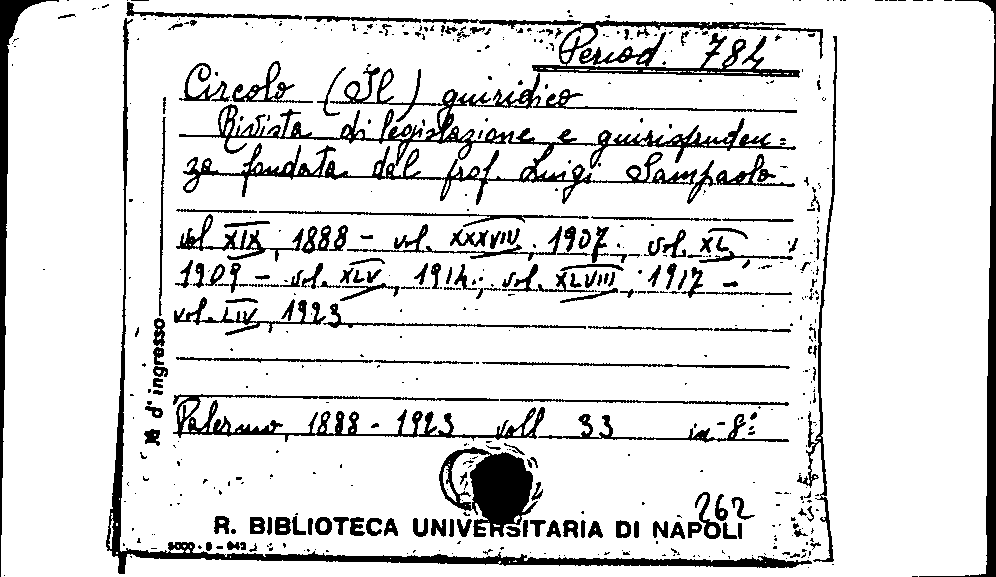 Period. 784
Circolo (Il) guiridico
Rivista di legislazione e guirispruden=
za fondata dal prof. Luigi Sampaolo
vol XIX, 1888 - vol. XXXVIII, 1907; vol. XL,
1909 - vol. XLV, 1914; vol. XLVIII, 1917 -
vol. LIV, 1923.
Palermo, 1888 - 1923 voll 33 in-8°
№ d'ingresso
262
R. BIBLIOTECA UNIVERSITARIA DI NAPOLI